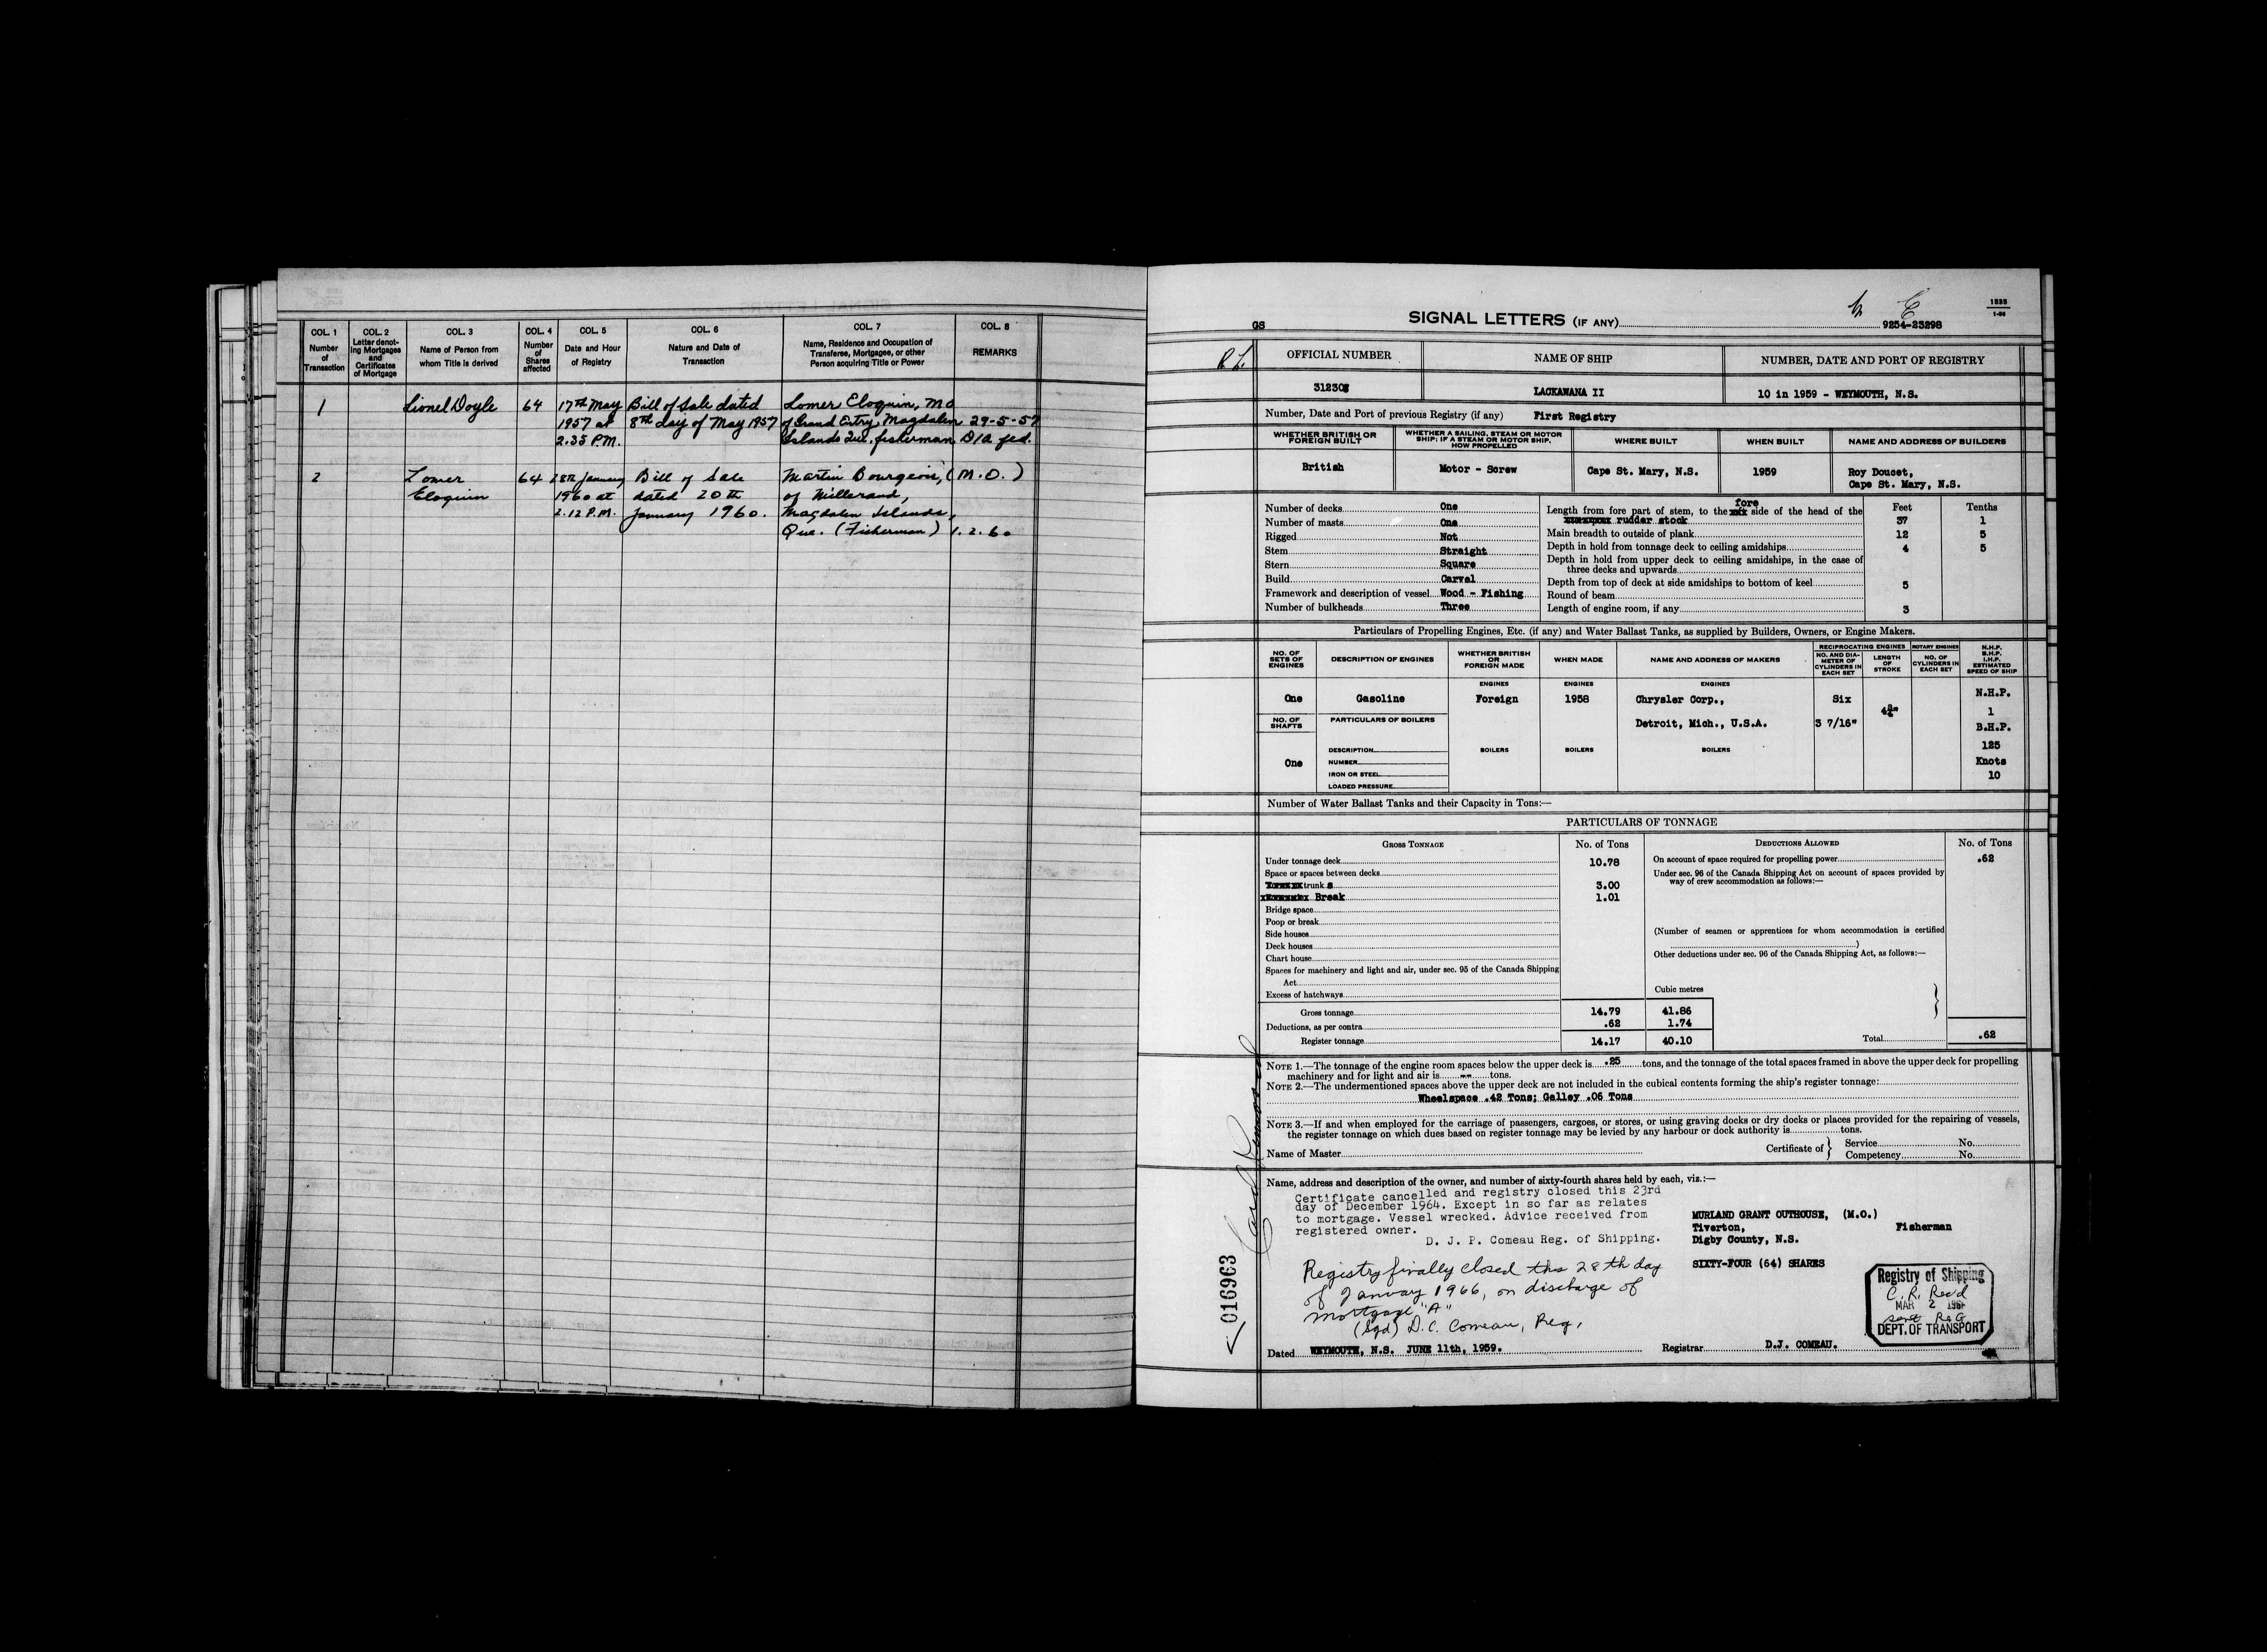 COL. 1 COL. 2 COL. 3 COL. 4 COL. 5 COL. 6 COL. 7 COL. 8
Number of Transaction
Letter denoting Mortgages and Certificates of Mortgage
Name of Person from whom Title is derived
Number of Shares affected
Date and Hour of Registry
Nature and Date of Transaction
Name, Residence and Occupation of Transferee, Mortgagee, or other Person acquiring Title or Power
REMARKS
1 Lionel Doyle 64 17th May Bill of Sale dated Lomer Eloquin, M O
1957 at 8th day of May 1957 of Grand Entry, Magdalen 29-5-57
2.35 P.M. Islands Que. fisherman D/A fed.
2 Lomer 64 28th January Bill of Sale Martin Bourgeois, (M.O.)
Eloquin 1960 at dated 20th of Millerand,
2.12 P.M. January 1960. Magdalen Islands,
Que. (Fisherman) 1.2.60
1535
1-56
GS SIGNAL LETTERS (IF ANY) 9254-23298
R.L.
OFFICIAL NUMBER NAME OF SHIP NUMBER, DATE AND PORT OF REGISTRY
LACKAWANA II 10 in 1959 - WEYMOUTH, N.S.
Number, Date and Port of previous Registry (if any) First Registry
WHETHER BRITISH OR FOREIGN BUILT
WHETHER A SAILING, STEAM OR MOTOR SHIP; IF A STEAM OR MOTOR SHIP, HOW PROPELLED
WHERE BUILT WHEN BUILT NAME AND ADDRESS OF BUILDERS
British Motor - Screw Cape St. Mary, N.S. 1959 Roy Doucet,
Cape St. Mary, N.S.
Number of decks One
Number of masts One
Rigged Not
Stem Straight
Stern Square
Build Carvel
Framework and description of vessel Wood - Fishing
Number of bulkheads Three
Feet Tenths
fore
Length from fore part of stem, to the side of the head of the
rudder stock 37 1
Main breadth to outside of plank 12 5
Depth in hold from tonnage deck to ceiling amidships 4 5
Depth in hold from upper deck to ceiling amidships, in the case of
three decks and upwards
Depth from top of deck at side amidships to bottom of keel 5
Round of beam
Length of engine room, if any 3
Particulars of Propelling Engines, Etc. (if any) and Water Ballast Tanks, as supplied by Builders, Owners, or Engine Makers.
NO. OF SETS OF ENGINES
DESCRIPTION OF ENGINES
WHETHER BRITISH OR FOREIGN MADE
WHEN MADE
NAME AND ADDRESS OF MAKERS
RECIPROCATING ENGINES ROTARY ENGINES
NO. AND DIAMETER OF CYLINDERS IN EACH SET
LENGTH OF STROKE
NO. OF CYLINDERS IN EACH SET
N.H.P. B.H.P. I.H.P. ESTIMATED SPEED OF SHIP
ENGINES ENGINES ENGINES
One Gasoline Foreign 1958 Chrysler Corp., Six N.H.P.
NO. OF SHAFTS PARTICULARS OF BOILERS Detroit, Mich., U.S.A. 3 7/16" 4¾" 1
B.H.P.
125
DESCRIPTION BOILERS BOILERS BOILERS
One NUMBER Knots
IRON OR STEEL 10
LOADED PRESSURE
Number of Water Ballast Tanks and their Capacity in Tons:—
PARTICULARS OF TONNAGE
GROSS TONNAGE No. of Tons DEDUCTIONS ALLOWED No. of Tons
Under tonnage deck 10.78
Space or spaces between decks
trunk s 3.00
Break 1.01
Bridge space
Poop or break
Side houses
Deck houses
Chart house
Spaces for machinery and light and air, under sec. 95 of the Canada Shipping
Act
Excess of hatchways
Cubic metres
Gross tonnage 14.79 41.86
Deductions, as per contra .62 1.74
Register tonnage 14.17 40.10
On account of space required for propelling power .62
Under sec. 96 of the Canada Shipping Act on account of spaces provided by
way of crew accommodation as follows:—
(Number of seamen or apprentices for whom accommodation is certified
)
Other deductions under sec. 96 of the Canada Shipping Act, as follows:—
Total .62
NOTE 1.—The tonnage of the engine room spaces below the upper deck is .25 tons, and the tonnage of the total spaces framed in above the upper deck for propelling
machinery and for light and air is -- tons.
NOTE 2.—The undermentioned spaces above the upper deck are not included in the cubical contents forming the ship's register tonnage:
Wheelspace .42 Tons; Galley .06 Tons
NOTE 3.—If and when employed for the carriage of passengers, cargoes, or stores, or using graving docks or dry docks or places provided for the repairing of vessels,
the register tonnage on which dues based on register tonnage may be levied by any harbour or dock authority is tons.
Name of Master Certificate of Service No.
Competency No.
Name, address and description of the owner, and number of sixty-fourth shares held by each, viz.:—
Certificate cancelled and registry closed this 23rd
day of December 1964. Except in so far as relates
to mortgage. Vessel wrecked. Advice received from
registered owner.
D. J. P. Comeau Reg. of Shipping.
MURLAND GRANT OUTHOUSE, (M.O.)
Tiverton, Fisherman
Digby County, N.S.
SIXTY-FOUR (64) SHARES
Registry finally closed this 28th day
of January 1966, on discharge of
mortgage "A"
(Sgd) D.C. Comeau, Reg.
Registry of Shipping
C. R. Rec'd
MAR 2
DEPT. OF TRANSPORT
Dated WEYMOUTH, N.S. JUNE 11th, 1959. Registrar D.J. COMEAU.
Card Removed
016963